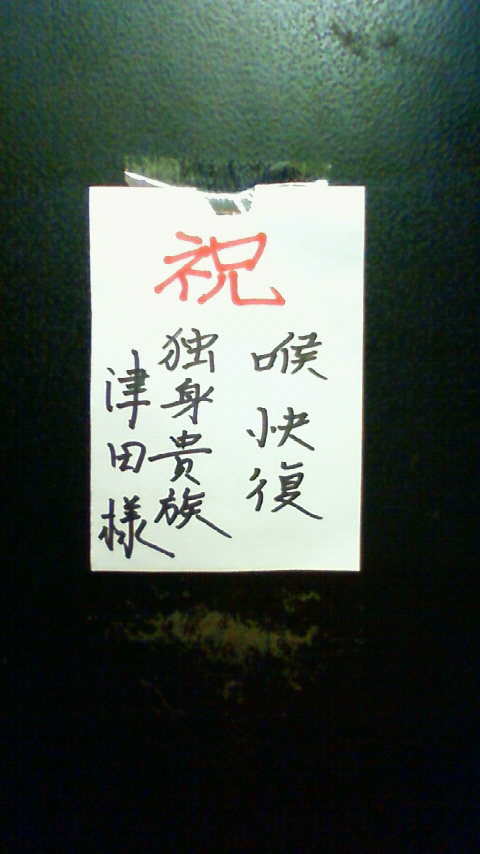 祝
喉快復
独身貴族
津田様